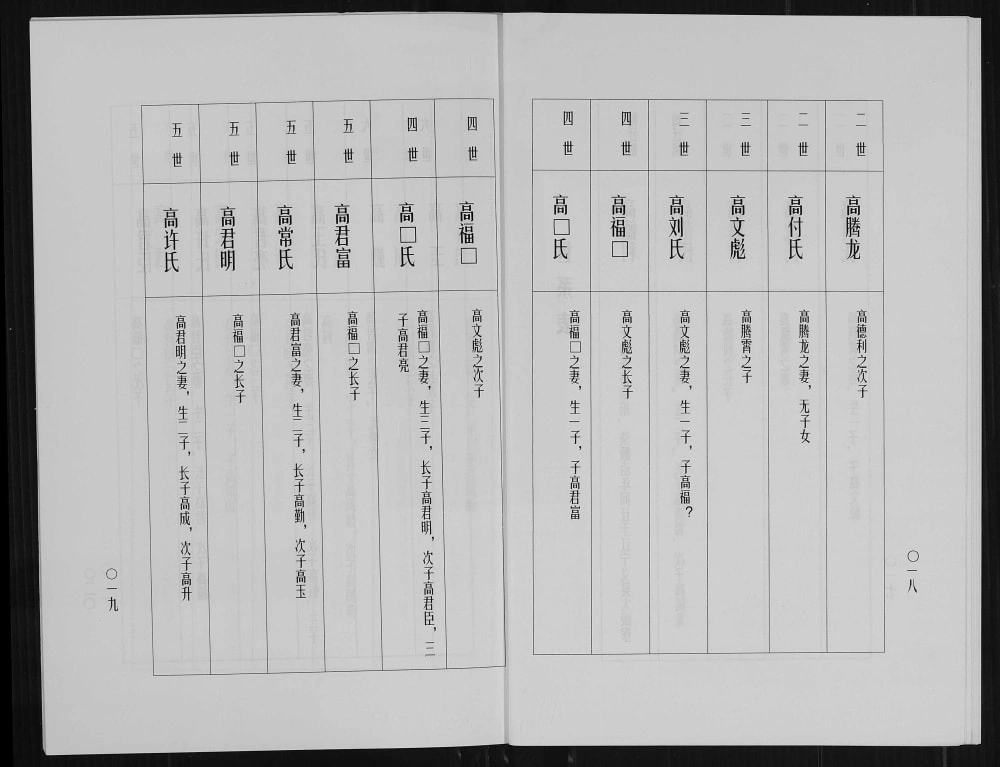 二世
高腾龙
高德利之次子
二世
高付氏
高腾龙之妻，无子女
三世
高文彪
高腾霄之子
三世
高刘氏
高文彪之妻，生一子，子高福？
四世
高福□
高文彪之长子
四世
高□氏
高福□之妻，生一子，子高君富
〇一八
四世
高福□
高文彪之次子
四世
高□氏
高福□之妻，生三子，长子高君明，次子高君臣，三
子高君亮
五世
高君富
高福□之长子
五世
高常氏
高君富之妻，生二子，长子高勤，次子高玉
五世
高君明
高福□之长子
五世
高许氏
高君明之妻，生二子，长子高成，次子高升
〇一九